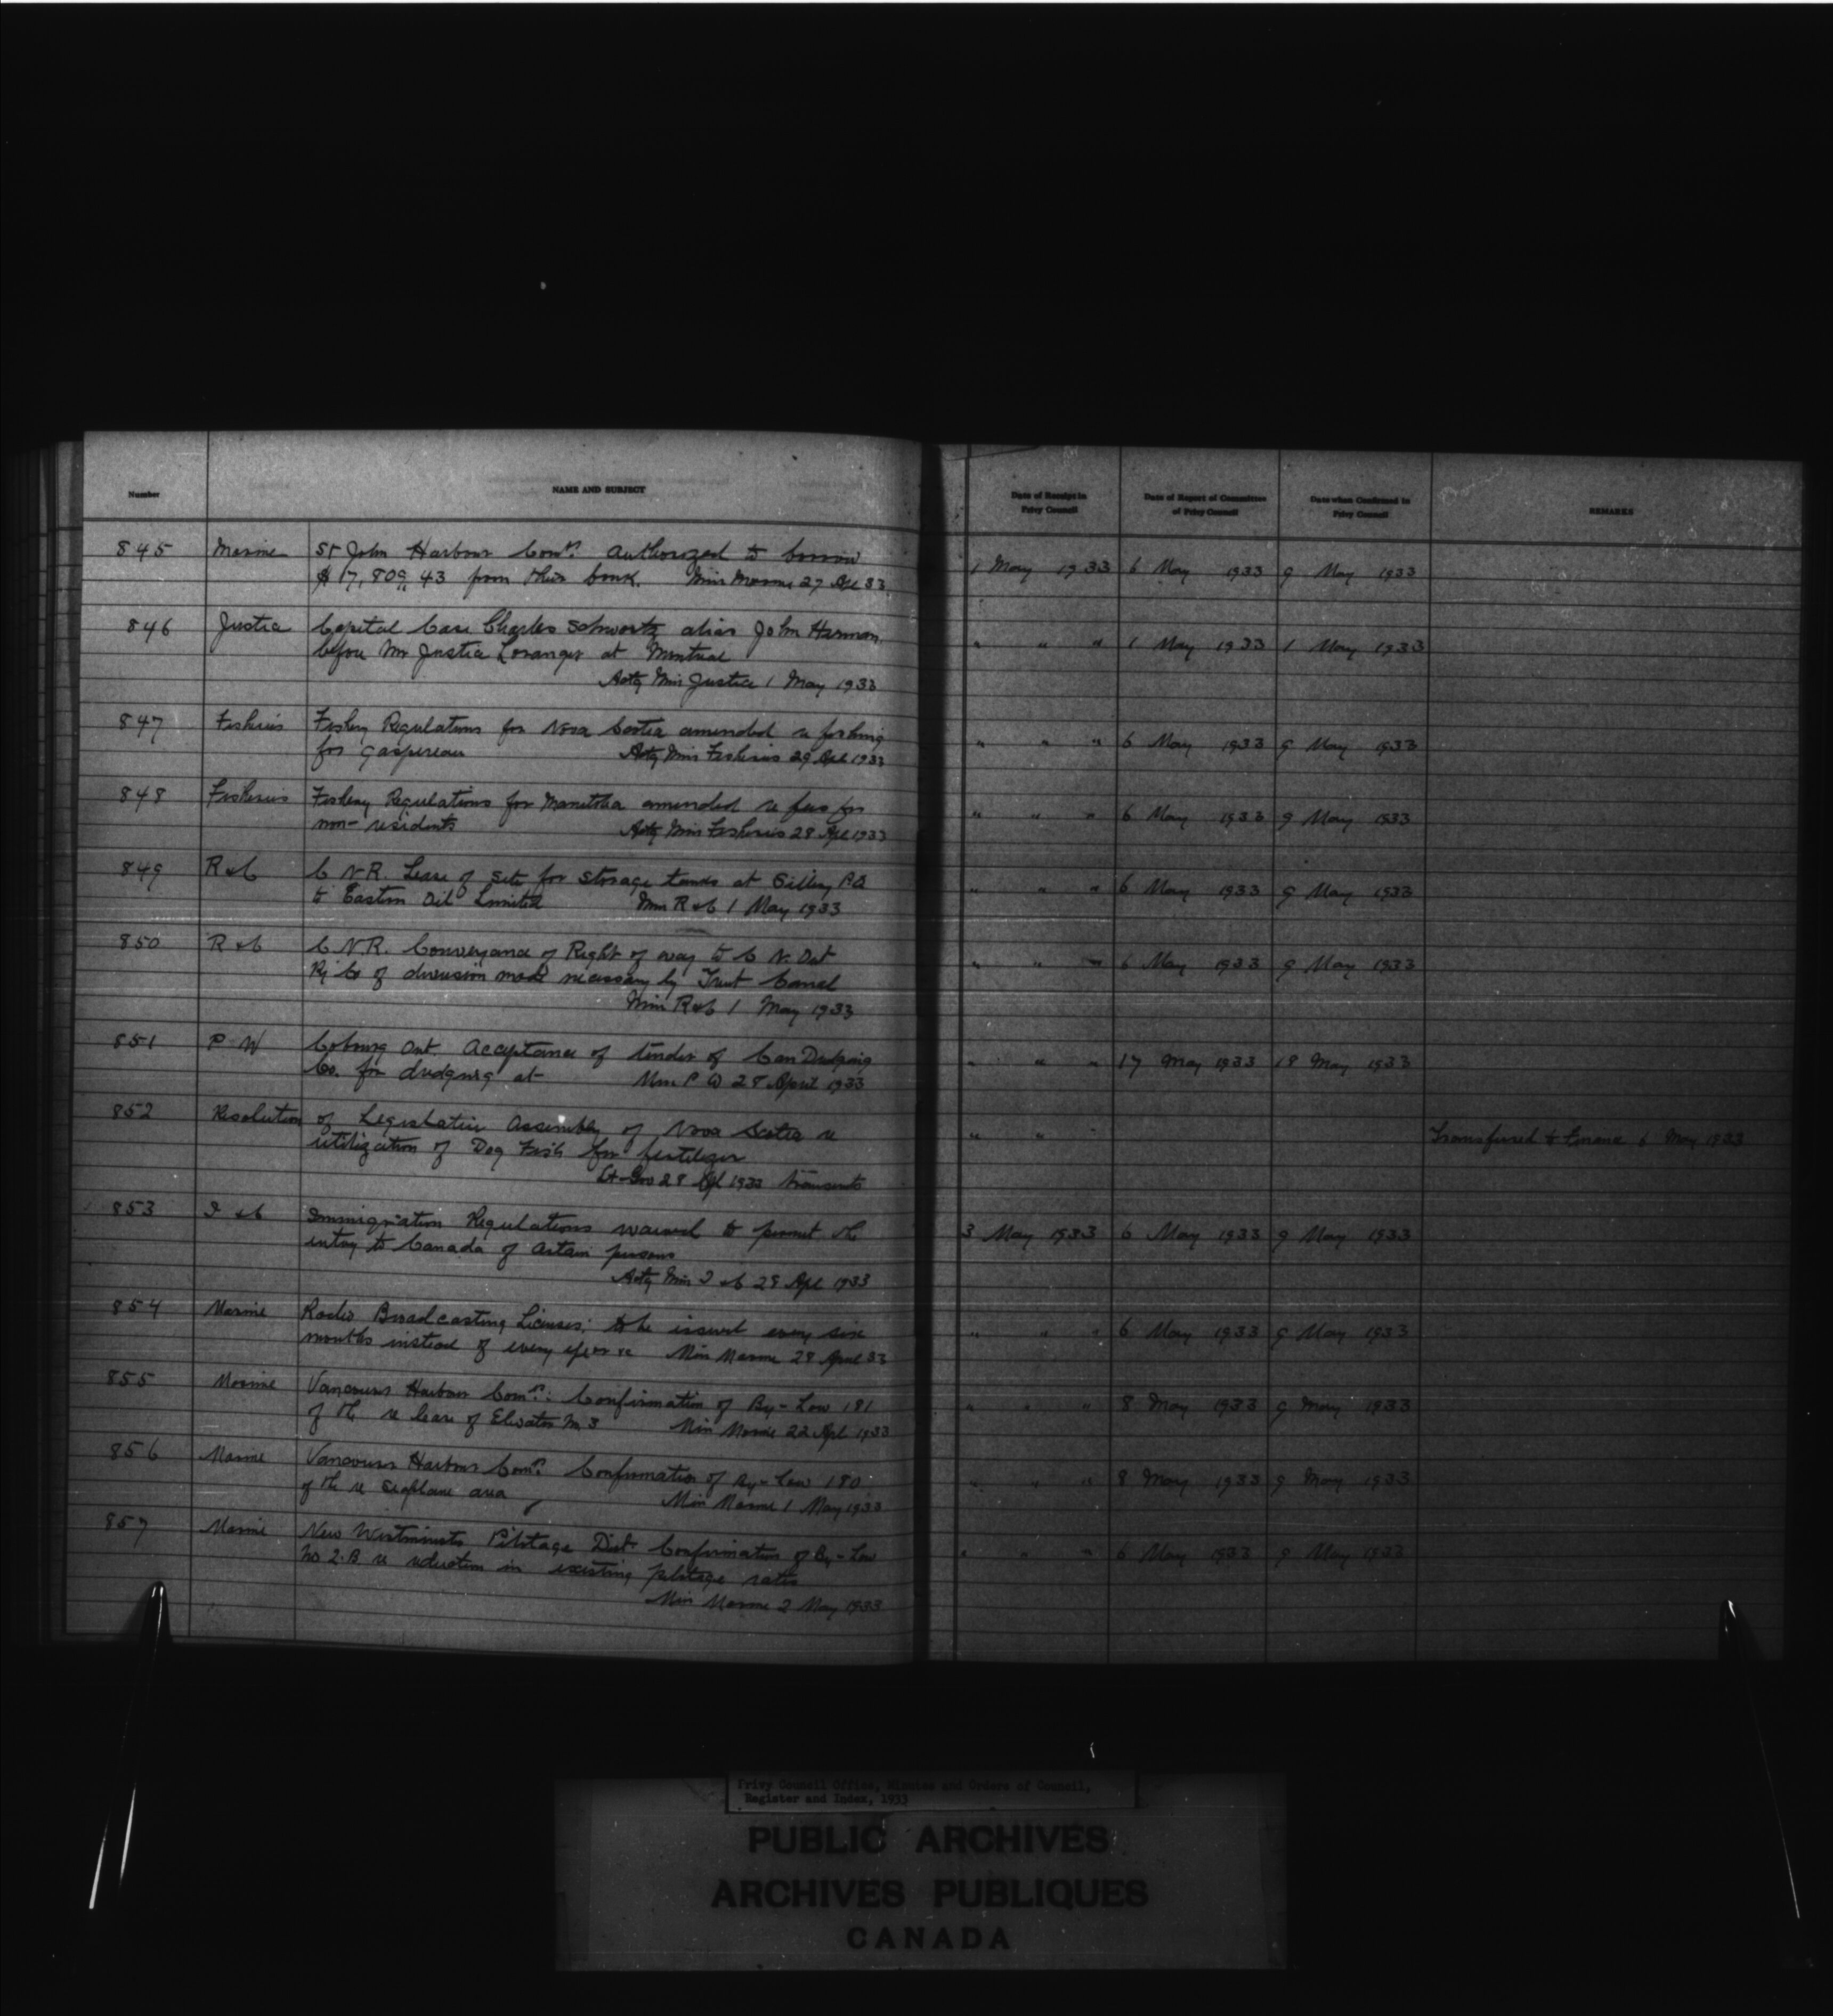 Number
NAME AND SUBJECT
Date of Receipt in Privy Council
Date of Report of Committee of Privy Council
Date when Confirmed in Privy Council
REMARKS
845 Marine St John Harbour Comrs. authorized to borrow 1 May 1933 6 May 1933 9 May 1933
$17,809.43 from their bank. Min Marine 27 Apl 33
846 Justice Capital Case Charles Schwartz alias John Harman, " " " 1 May 1933 1 May 1933
before Mr Justice Loranger at Montreal
Actg Min Justice 1 May 1933
847 Fisheries Fishery Regulations for Nova Scotia amended re fishing " " " 6 May 1933 9 May 1933
for gaspereau Actg Min Fisheries 29 Apl 1933
848 Fisheries Fishery Regulations for Manitoba amended re fees for " " " 6 May 1933 9 May 1933
non-residents Actg Min Fisheries 28 Apl 1933
849 R & C C N.R. Lease of site for storage tanks at Sillery P.Q " " " 6 May 1933 9 May 1933
to Eastern Oil Limited Min R & C 1 May 1933
850 R & C C.N.R. Conveyance of Right of way to C N. Ont " " " 6 May 1933 9 May 1933
Ry Co of diversion made necessary by Trent Canal
Min R & C 1 May 1933
851 P W Cobourg Ont. Acceptance of tender of Can Dredging " " " 17 May 1933 18 May 1933
Co. for dredging at Min P W 28 April 1933
852 Resolution of Legislative Assembly of Nova Scotia re " " " Transferred to Finance 6 May 1933
utilization of Dog Fish for fertilizer
Lt-Gov 28 Apl 1933 transmits
853 I & C Immigration Regulations waived to permit the 3 May 1933 6 May 1933 9 May 1933
entry to Canada of certain persons
Actg Min I & C 29 Apl 1933
854 Marine Radio Broadcasting Licenses: to be issued every six " " " 6 May 1933 9 May 1933
months instead of every Min Marine 28 April 33
855 Marine Vancouver Harbour Comrs: Confirmation of By-Law 181 " " " 8 May 1933 9 May 1933
of the re lease of Elevator No 3 Min Marine 22 Apl 1933
856 Marine Vancouver Harbour Comrs. Confirmation of By-Law 180 " " " 8 May 1933 9 May 1933
of the re Seaplane area Min Marine 1 May 1933
857 Marine New Westminster Pilotage Dist. Confirmation of By-Law " " " 6 May 1933 9 May 1933
No 2.B re reduction in existing pilotage rates
Min Marine 2 May 1933
Privy Council Office, Minutes and Orders of Council,
Register and Index, 1933
PUBLIC ARCHIVES
ARCHIVES PUBLIQUES
CANADA